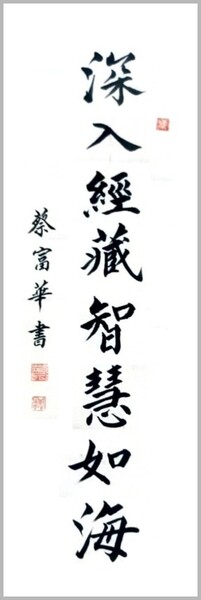 深入經藏智慧如海
蔡富華書